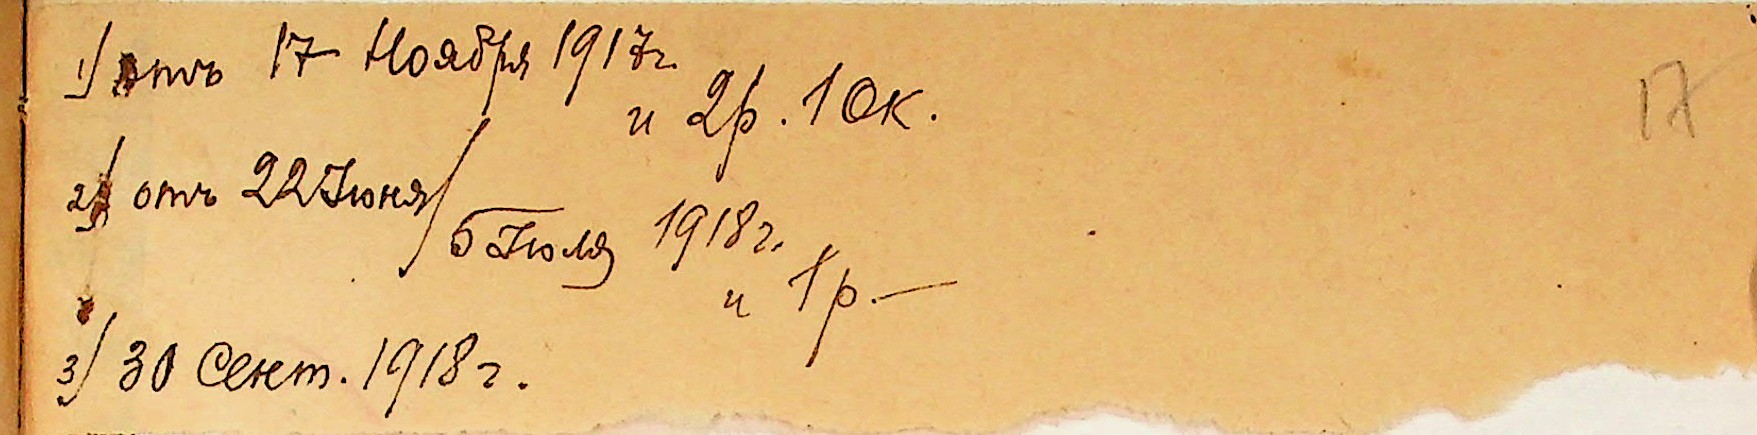 1) отъ 17 Ноября 1917г.
и 2р. 10к.
17
2) отъ 22 Июня/
5 Июля 1918г.
и 1р.—
3) 30 Сент. 1918г.